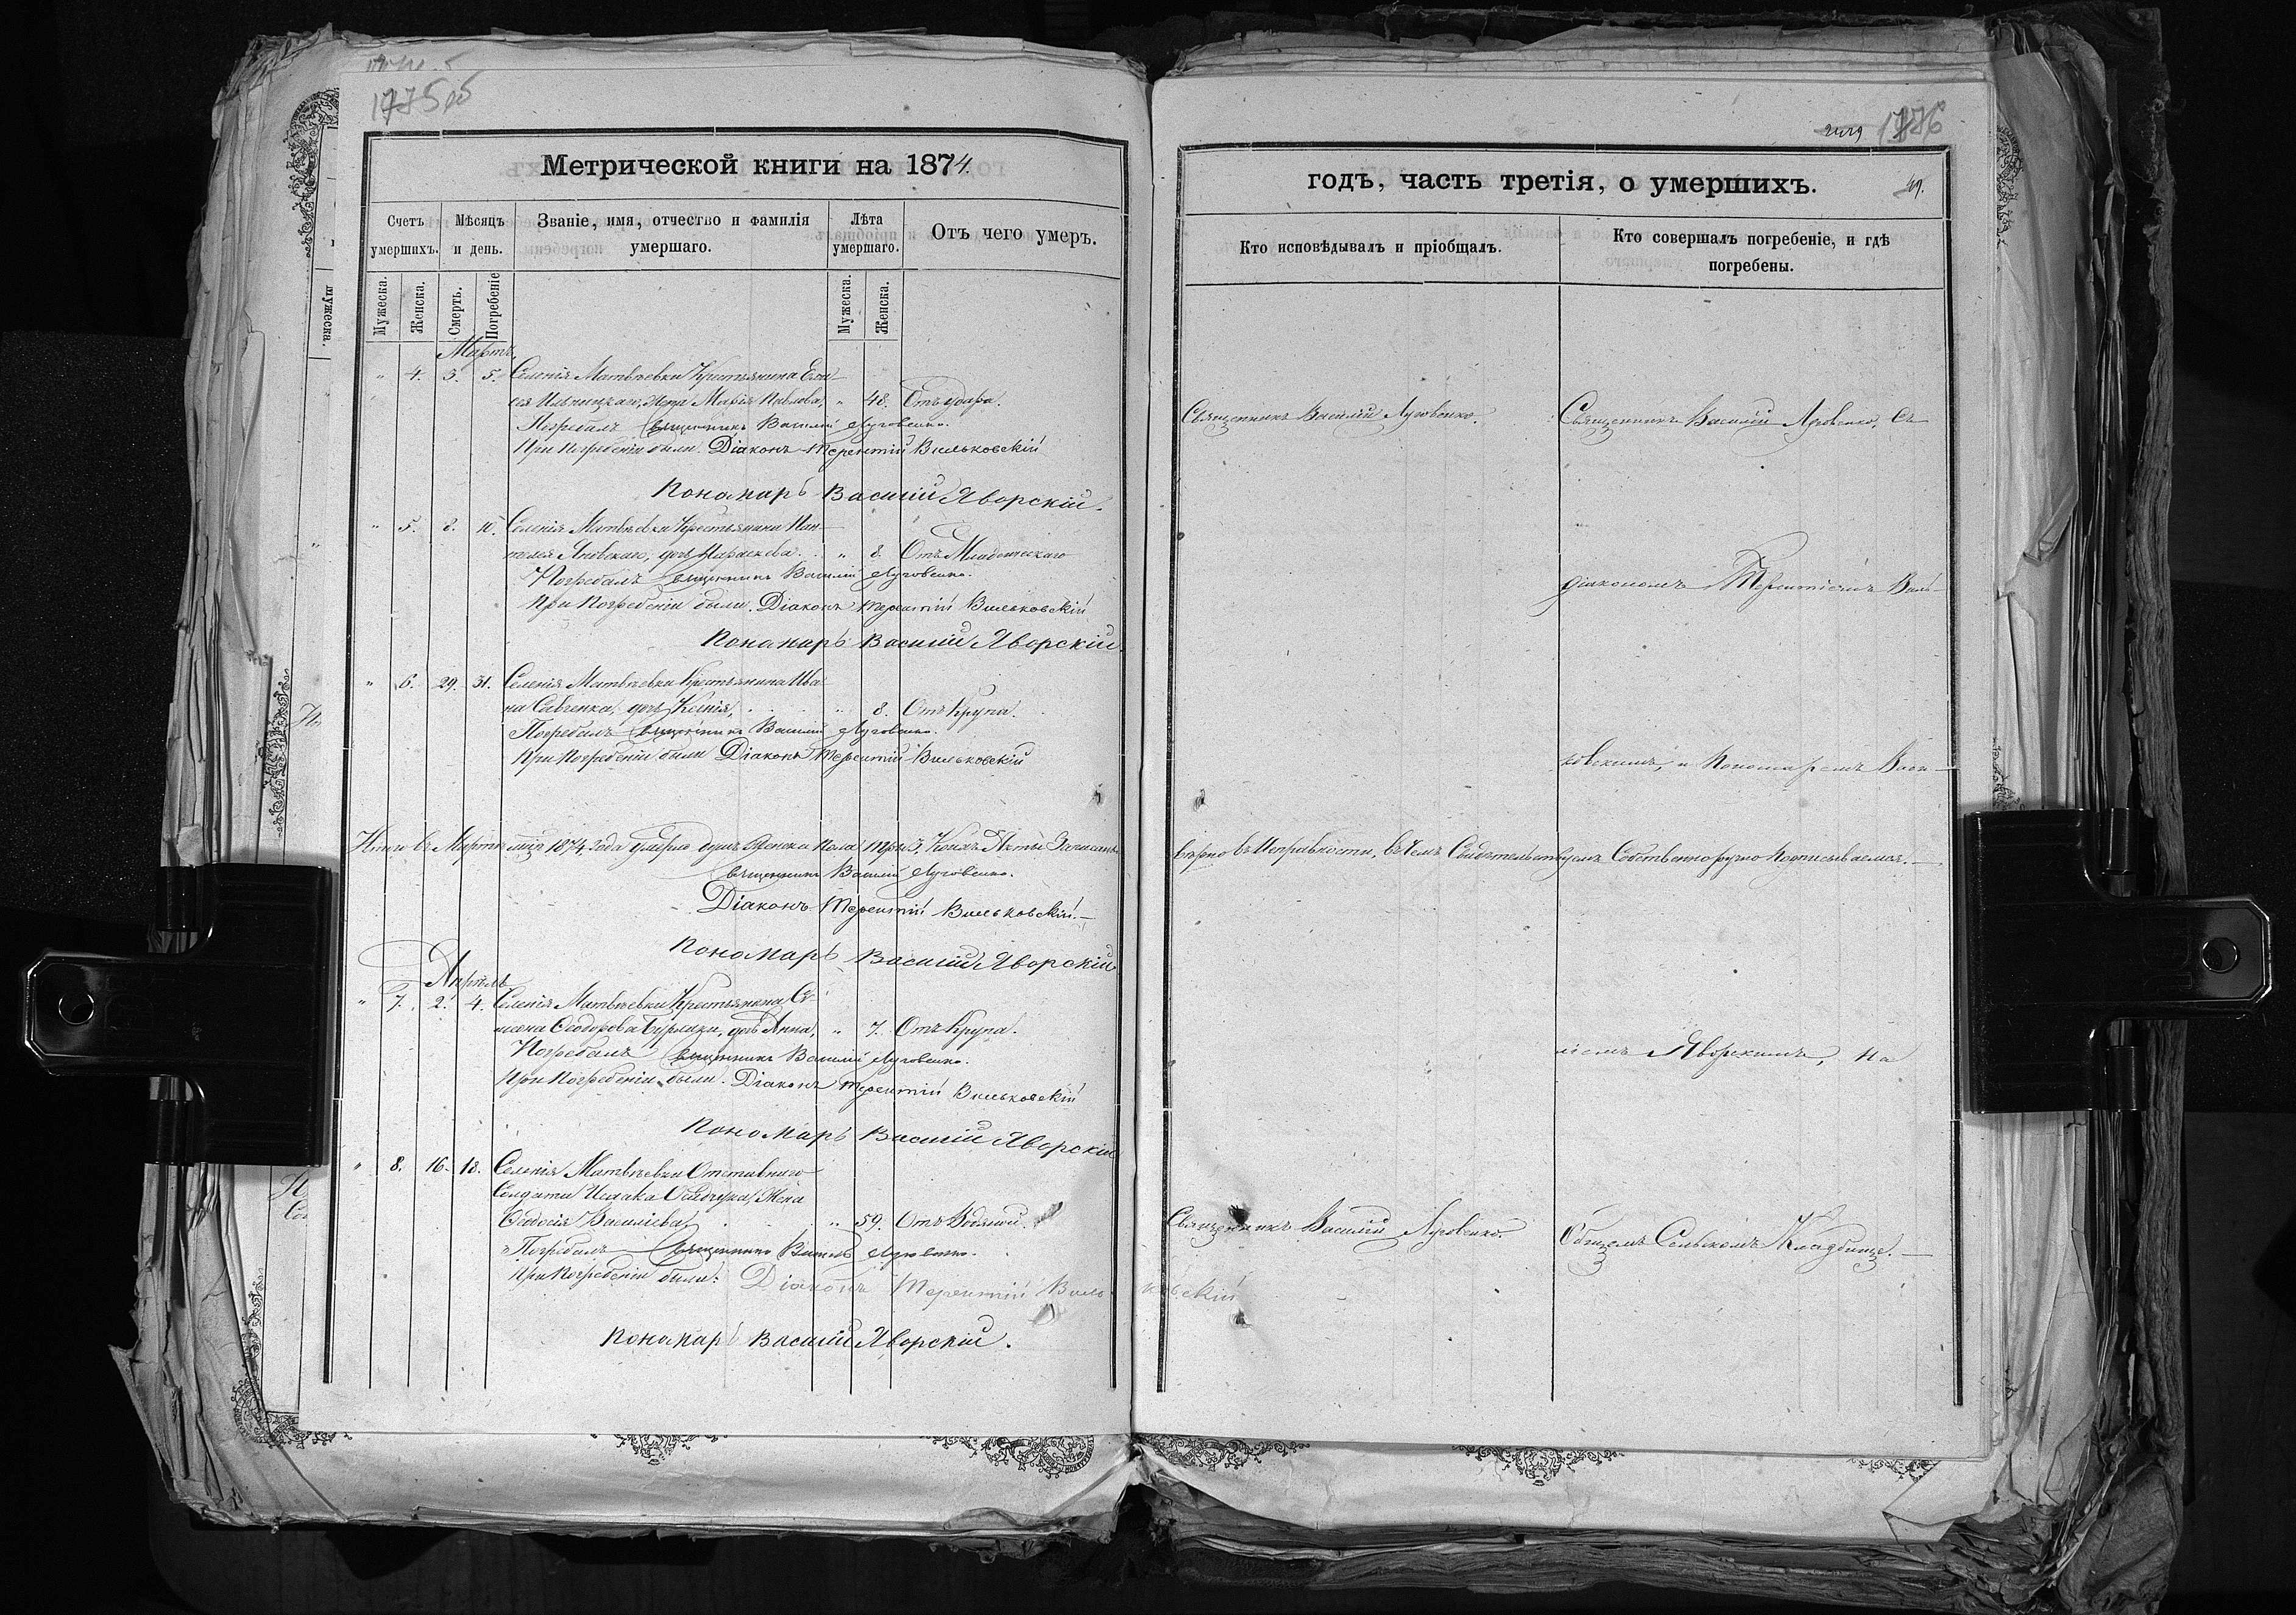 1775 об
2429 1776
Метрической книги на 1874.
годъ, часть третія, о умершихъ.
49.
Счетъ умершихъ.
Мѣсяцъ и день.
Званіе, имя, отчество и фамилія умершаго.
Лѣта умершаго.
Отъ чего умеръ.
Кто исповѣдывалъ и пріобщалъ.
Кто совершалъ погребеніе, и гдѣ погребены.
Мужеска.
Женска.
Смерть.
Погребеніе
Мужеска.
Женска.
Мартъ.
" 4. 3. 5. Селенія Матвѣевки Крестьянина Ели-
сея Ильницкаго, жена Марія Павлова, " 48. Отъ удара.
Священникъ Василій Луговенко.
Священникъ Василій Луговенко, съ
Погребалъ Священникъ Василій Луговенко.
При погребеніи были. Діаконъ Терентій Вильковскій
Пономарь Василій Яворскій.
" 5. 8. 10. Селенія Матвѣевки Крестьянина Пан-
телея Яновскаго, дочь Параскева. " 8. Отъ Младенческаго
Погребалъ Священникъ Василій Луговенко.
діакономъ Терентіемъ Виль-
При Погребеніи были. Діаконъ Терентій Вильковскій
Пономарь Василій Яворскій
" 6. 29. 31. Селенія Матвѣевки Крестьянина Ива-
на Савченка, дочь Ксенія, " 8. Отъ Крупа.
Погребалъ Священникъ Василій Луговенко.
При Погребеніи были Діаконъ Терентій Вильковскій
ковскимъ, и Пономаремъ Васи-
Итого въ Мартѣ мцѣ 1874 года умерло душъ Женска пола три 3, Коихъ Акты Записаны
вѣрно въ Исправности, въ чемъ Свидѣтельствуемъ Собственноручно Подписываемся.
Священникъ Василій Луговенко.
Діаконъ Терентій Вильковскій.
Пономарь Василій Яворскій
Апрѣль
" 7. 2. 4. Селенія Матвѣевки Крестьянина Се-
мена Ѳеодорова Бурлаки, дочь Анна, " 7. Отъ Крупа.
Погребалъ Священникъ Василій Луговенко.
ліемъ Яворскимъ, на
При Погребеніи были. Діаконъ Терентій Вильковскій
Пономарь Василій Яворскій
" 8. 16. 18. Селенія Матвѣевки Отставнаго
Солдата Исаака Жена
Ѳеодосія Васильева, " 59. Отъ Водяной.
Священникъ Василій Луговенко.
Общемъ Сельскомъ Кладбище.
Погребалъ Священникъ Василій Луговенко.
При Погребеніи были: Діаконъ Терентій Вильковскій
Пономарь Василій Яворскій.